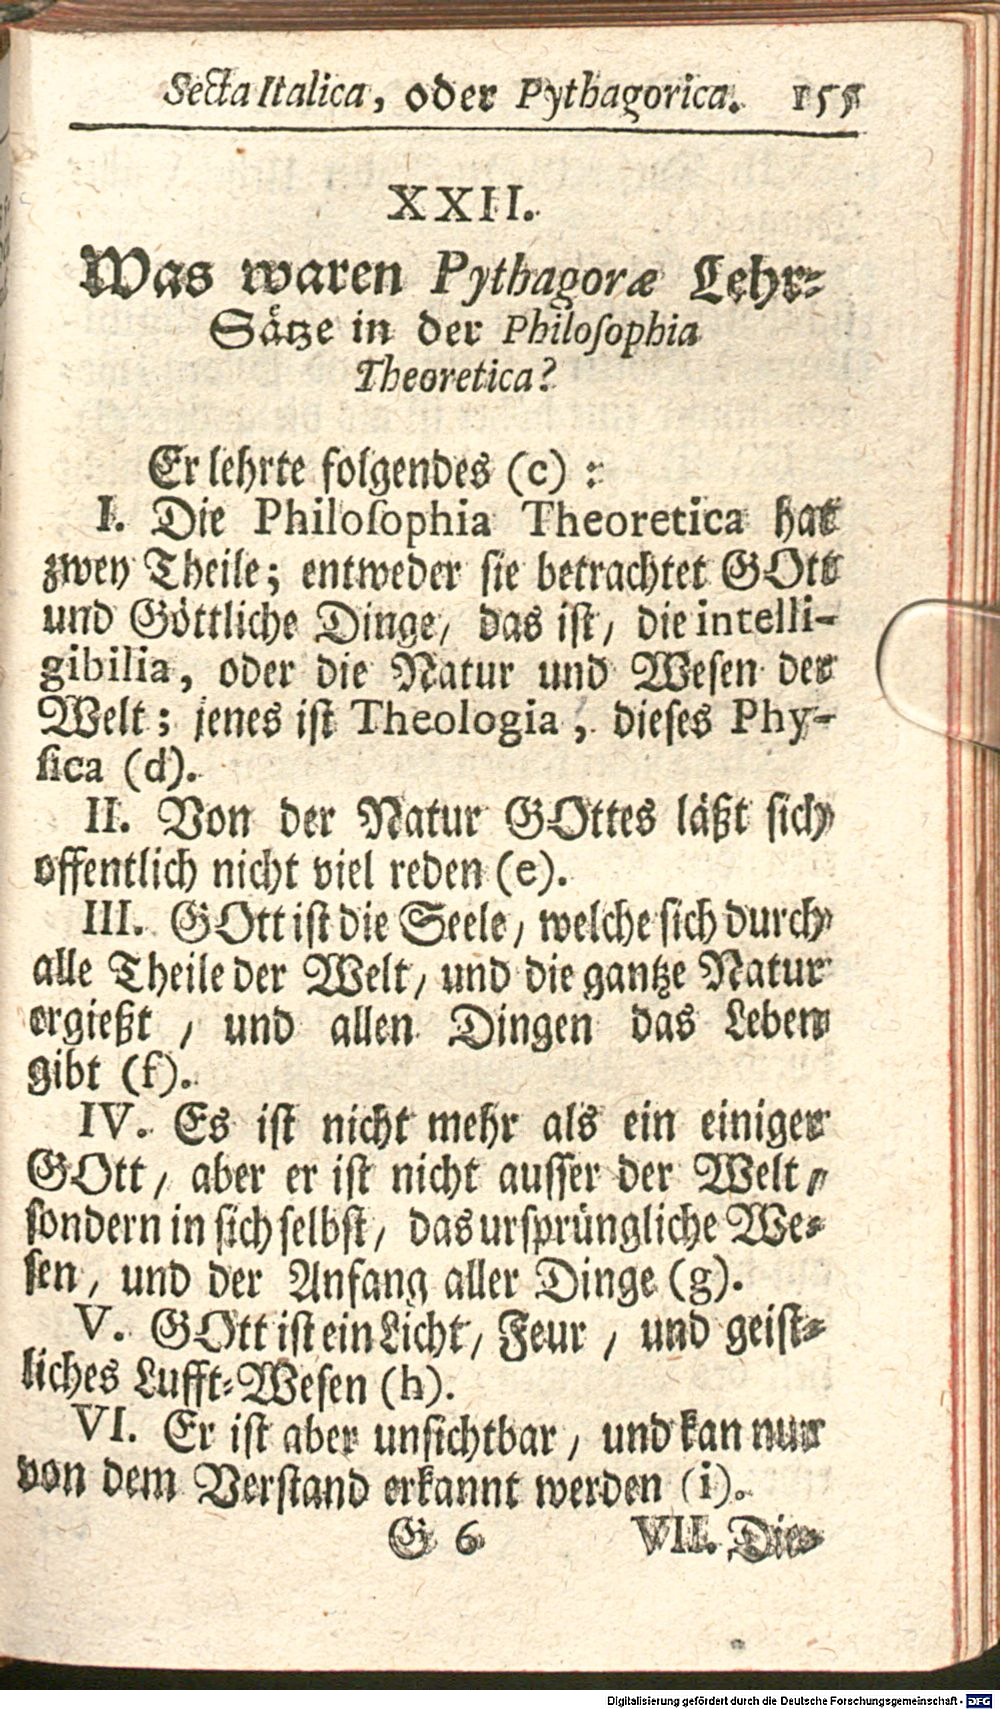 Secta Italica, oder Pythagorica. 155
XXII.
Was waren Pythagoræ Lehr-
Sätze in der Philoſophia
Theoretica?
Er lehrte folgendes (c) :
I. Die Philoſophia Theoretica hat
zwey Theile; entweder ſie betrachtet GOtt
und Göttliche Dinge, das iſt, die intelli-
gibilia, oder die Natur und Weſen der
Welt; jenes iſt Theologia, dieſes Phy-
ſica (d).
II. Von der Natur GOttes läßt ſich
offentlich nicht viel reden (e).
III. GOtt iſt die Seele, welche ſich durch
alle Theile der Welt, und die gantze Natur
ergießt, und allen Dingen das Leben
gibt (f).
IV. Es iſt nicht mehr als ein einiger
GOtt, aber er iſt nicht auſſer der Welt,
ſondern in ſich ſelbſt, das urſprüngliche We-
ſen, und der Anfang aller Dinge (g).
V. GOtt iſt ein Licht, Feur, und geiſt-
liches Lufft-Weſen (h).
VI. Er iſt aber unſichtbar, und kan nur
von dem Verſtand erkannt werden (i).
G 6 VII. Die-
Digitalisierung gefördert durch die Deutsche Forschungsgemeinschaft - DFG